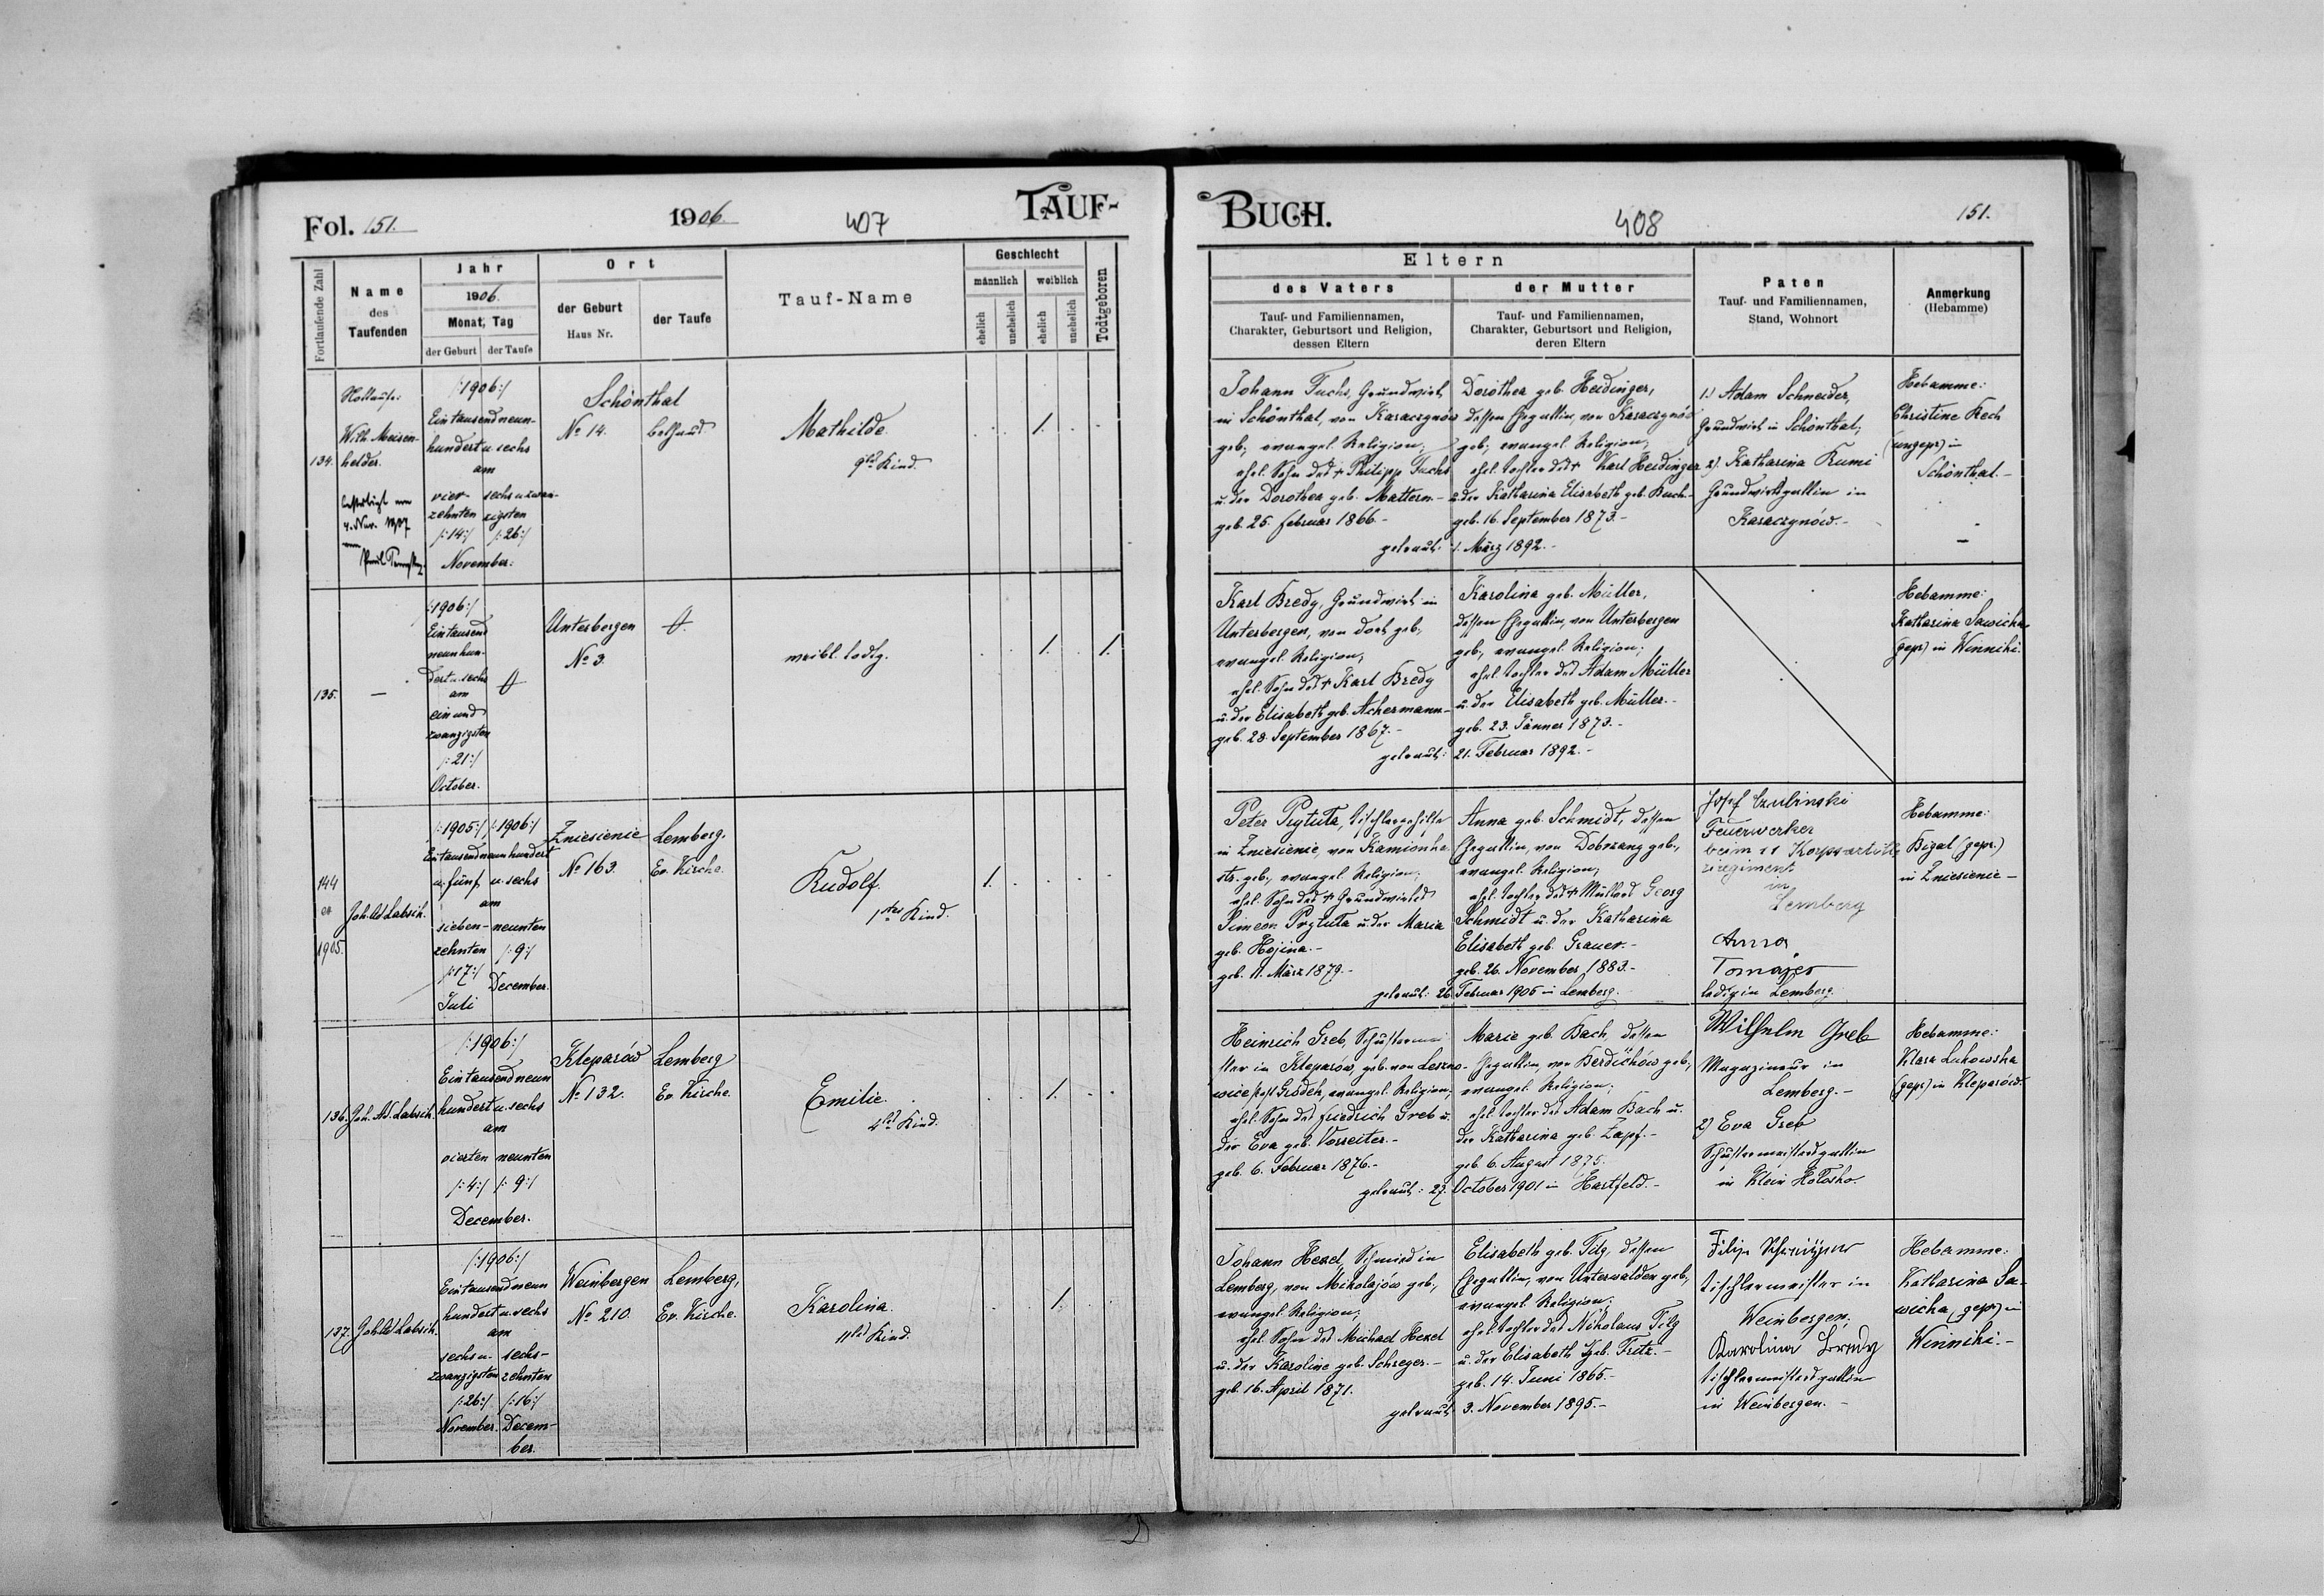 Fol. 151.
1906.
407
TAUF-
Fortlaufende Zahl
Name
des
Taufenden
Jahr
1906.
Monat, Tag
der Geburt
der Taufe
Ort
der Geburt
Haus Nr.
der Taufe
Tauf-Name
Geschlecht
männlich
weiblich
ehelich
unehelich
ehelich
unehelich
Todtgeboren
134.
Nottaufe:
Wilh. Meisen-
helder.
/:1906:/
Ein tausend neun-
hundert u. sechs
am
vier-
zehnten
/:14:/
sechs u. zwan-
zigsten
/:26:/
November.
Schönthal
No 14.
Bethaus
Mathilde.
9tes Kind.
1.
135.
—
/:1906:/
Ein tausend
neunhun-
dert u. sechs
am
ein und
zwanzigsten
/:21:/
October.
Unterbergen
No 3.
weibl. todtg.
1.
1.
144
ex
1905.
Joh. Ad. Labsik.
/:1905:/ /:1906:/
Ein tausend neunhundert
u. fünf u. sechs
am
sieben-
zehnten
/:17:/
Juli
neunten
/:9:/
December.
Zniesienie
No 163.
Lemberg.
Ev. Kirche.
Rudolf.
1tes Kind.
1.
136.
Joh. Ad. Labsik.
/:1906:/
Ein tausend neun
hundert u. sechs
am
vierten neunten
/:4:/ /:9:/
December.
Kleparów
No 132.
Lemberg
Ev. Kirche.
Emilie.
4tes Kind.
1.
137.
Joh. Ad. Labsik.
/:1906:/
Ein tausend neun
hundert u. sechs
am
sechs u.
zwanzigsten
/:26:/
November.
sechs-
zehnten
/:16:/
Decem-
ber.
Weinbergen
No 210.
Lemberg,
Ev. Kirche.
Karolina.
11tes Kind.
1.
BUCH.
408
151.
Eltern
des Vaters
Tauf- und Familiennamen,
Charakter, Geburtsort und Religion,
dessen Eltern
der Mutter
Tauf- und Familiennamen,
Charakter, Geburtsort und Religion,
deren Eltern
Paten
Tauf- und Familiennamen,
Stand, Wohnort
Anmerkung
(Hebamme)
Johann Fuchs, Grundwirt
in Schönthal, von Karaczynów
geb., evangel. Religion;
ehel. Sohn des + Philipp Fuchs
u. der Dorothea geb. Mattern.-
geb. 25. Februar 1866.-
getraut:
Dorothea geb. Heidinger,
dessen Ehegattin, von Karaczynów
geb., evangel. Religion;
ehel. Tochter des + Karl Heidinger
u. der Katharina Elisabeth geb. Buch.-
geb. 16. September 1873.-
1. März 1892.-
1.) Adam Schneider,
Grundwirt in Schönthal;
2). Katharina Kumi
Grundwirtsgattin in
Karaczynów.-
Hebamme:
Christine Kech
(ungepr.) in
Schönthal.-
Karl Bredy, Grundwirt in
Unterbergen, von dort geb.,
evangel. Religion;
ehel. Sohn des + Karl Bredy
u. der Elisabeth geb. Achermann.-
geb. 28. September 1867.-
getraut:
Karolina geb. Müller,
dessen Ehegattin, von Unterbergen
geb., evangel. Religion;
ehel. Tochter des Adam Müller
u. der Elisabeth geb. Müller.-
geb. 23. Jänner 1873.-
21. Februar 1892.-
Hebamme:
Katharina Sawicka
(gepr.) in Winniki.
Peter Prytuta, Tischlergehilfe
in Zniesienie, von Kamionka
str. geb., evangel. Religion;
ehel. Sohn des + Grundwirtes
Simeon Prytuta u. der Maria
geb. Hojina.-
geb. 11. März 1879.-
getraut: 26.
Anna geb. Schmidt, dessen
Ehegattin, von Dobrzany geb.,
evangel. Religion;
ehel. Tochter des + Müllers Georg
Schmidt u. der Katharina
Elisabeth geb. Grauer.-
geb. 26. November 1883.-
Februar 1905 in Lemberg.
Josef Czulinski
Feuerwerker
beim 11 Korpsartille
rieregiment
in
Lemberg
Anna
Tomajer
ledig in Lemberg.
Hebamme:
Bigal (gepr.)
in Zniesienie-
Heinrich Greb, Schustermei
ster in Kleparów, geb. von Leszno-
wice Post Grodek, evangel. Religion;
ehel. Sohn des Friedrich Greb u.
der Eva geb. Vorreiter.-
geb. 6. Februar 1876.-
getraut: 27.
Marie geb. Bach, dessen
Ehegattin, von Berdichów geb.,
evangel. Religion;
ehel. Tochter des Adam Bach u.
der Katharina geb. Zapf.-
geb. 6. August 1875.
October 1901 in Hartfeld.-
Wilhelm Greb
Magazineur in
Lemberg.-
2) Eva Greb
Schustermeistersgattin
in Klein Hołosko.
Hebamme:
Klara Lukowska
(gepr.) in Kleparów.
Johann Hexel, Schmied in
Lemberg, von Mikolajów geb.,
evangel. Religion;
ehel. Sohn des Michael Hexel
u. der Karoline geb. Schreger.-
geb. 16. April 1871.
getraut
Elisabeth geb. Filg, dessen
Ehegattin, von Unterwalden geb.,
evangel. Religion;
ehel. Tochter des Nikolaus Filg
u. der Elisabeth geb. Fritz.-
geb. 14. Juni 1865.-
3. November 1895.-
Filip
Tischlermeister in
Weinbergen;
Karolina Bredy
Tischlermeistersgattin
in Weinbergen.-
Hebamme:
Katharina Sa-
wicka (gepr.) in
Winniki.-